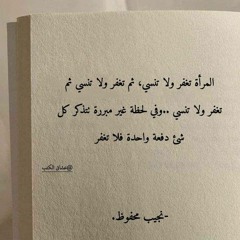 المرأة تغفر ولا تنسي، ثم تغفر ولا تنسي ثم
تغفر ولا تنسي ..وفي لحظة غير مبررة تتذكر كل
شئ دفعة واحدة فلا تغفر
-نجيب محفوظ.